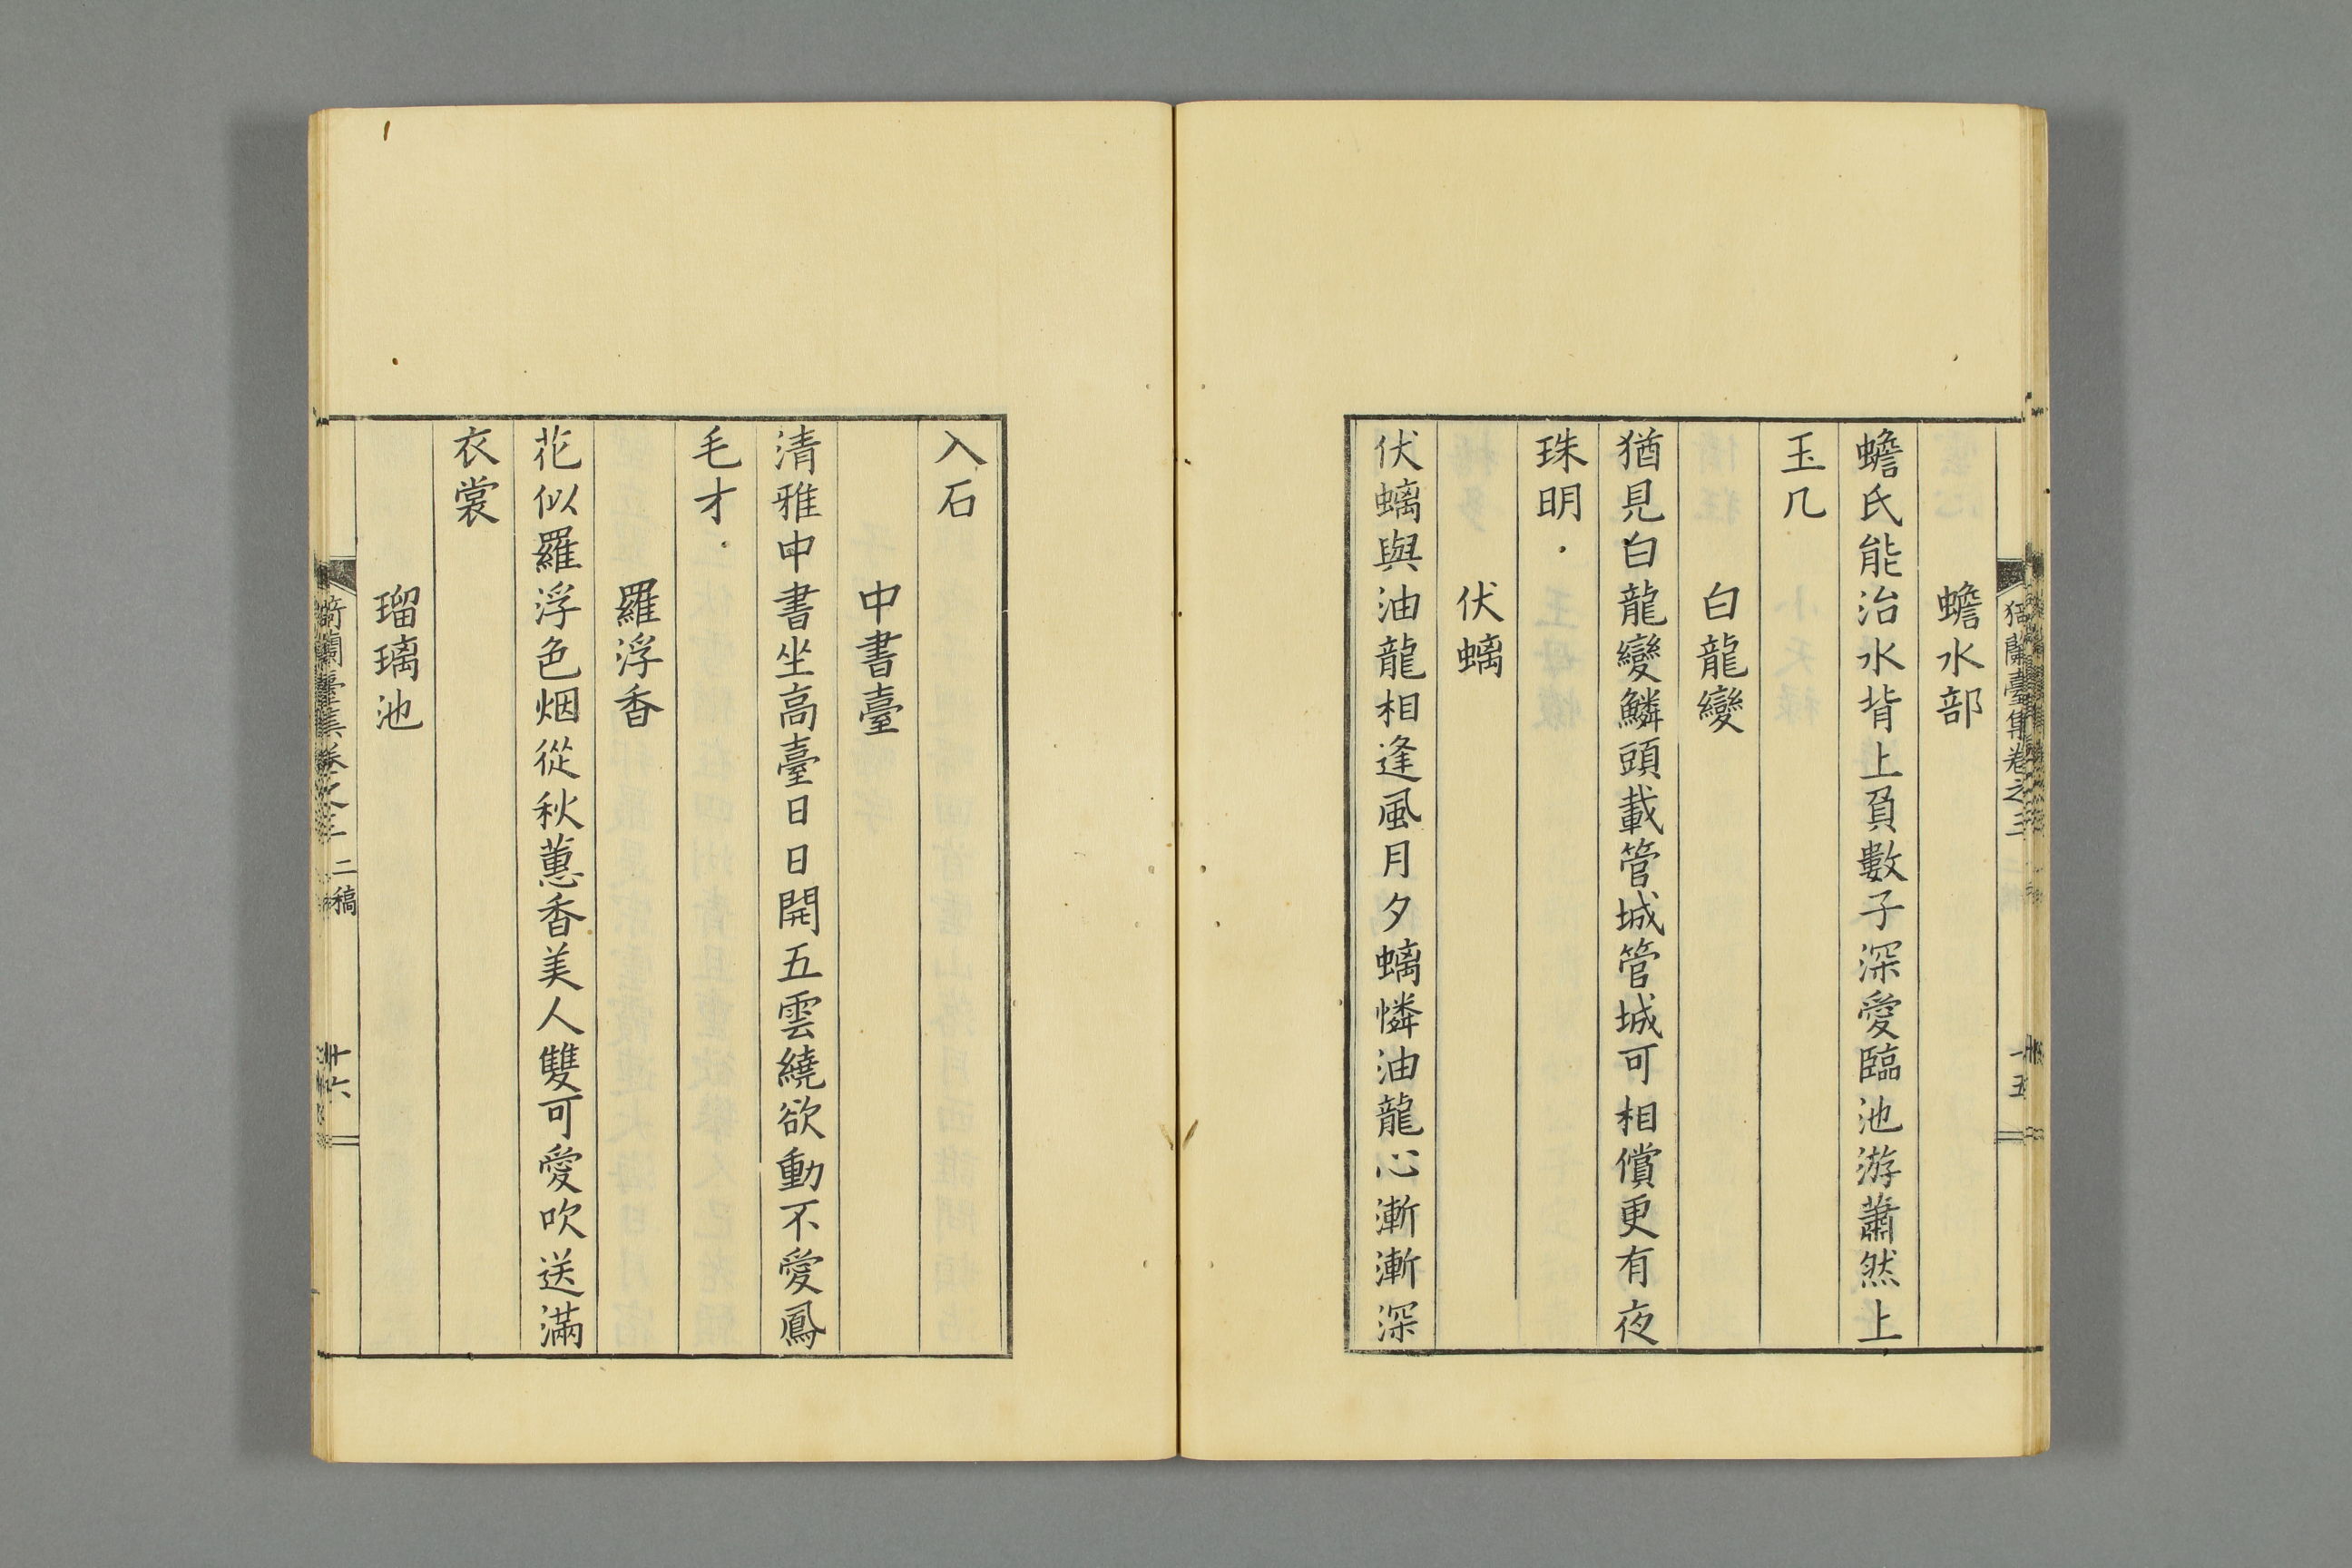 蟾水部
蟾氏能治水背上負數子深愛臨池游蕭然上
玉几
白龍變
猶見白龍變鱗頭載管城管城可相償更有夜
珠明
伏螭
伏螭與油龍相逢風月夕螭憐油龍心漸漸深
入石
中書臺
清雅中書坐高臺日日開五雲繞欲動不愛鳳
毛才
羅浮香
花似羅浮色烟從秋蕙香美人雙可愛吹送滿
衣裳
瑠璃池
蘭臺集卷之三 二稿